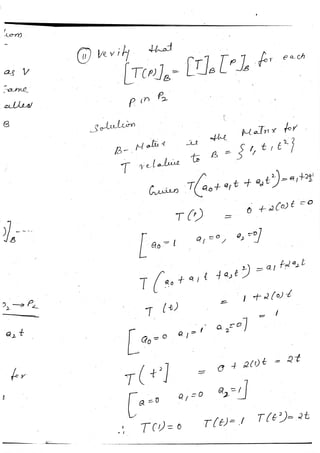 com
as V
same
called
B
)]B ---
P2 → P2
a2 t
for
(ii) Verify that
[T(P)]B = [T]B [P]B for each
P in P2
Solution
B- Matrix is the Matrix for
T relative to B = {1, t, t²}
Given T(a0 + a1t + a2t²) = a1 + 2a2
T(1) = 0 + 2(0)t = 0
[a0 = 1 a1 = 0, a2 = 0]
T(a0 + a1t + a2t²) = a1 + 2a2t
T(t) = 1 + 2(0)t
= 1
[a0 = 0 a1 = 1 a2 = 0]
T(t²] = 0 + 2(1)t = 2t
[a = 0 a1 = 0 a2 = 1]
∴ T(1) = 0 T(t) = 1 T(t²) = 2t